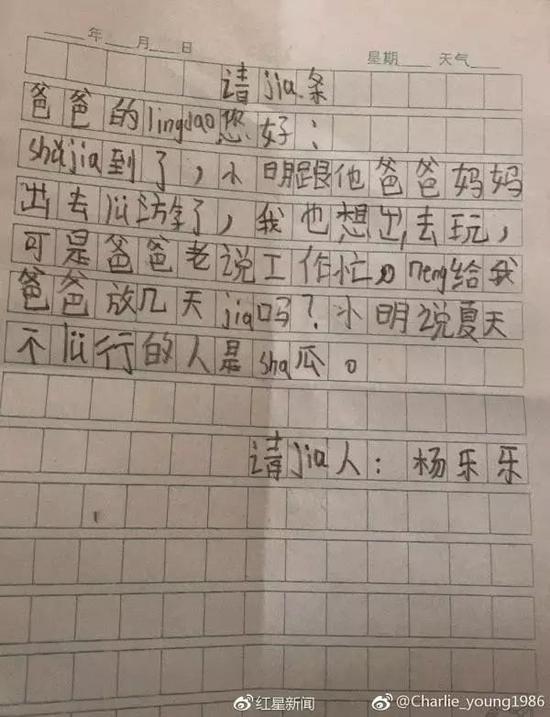 年 月 日 星期 天气
请jia条
爸爸的lingdao您好:
shǔjia到了,小明跟他爸爸妈妈
出去lǚ游了,我也想出去玩,
可是爸爸老说工作忙。neng给我
爸爸放几天jia吗?小明说夏天
不lǚ行的人是sha瓜。
请jia人:杨乐乐
红星新闻 @Charlie_young1986